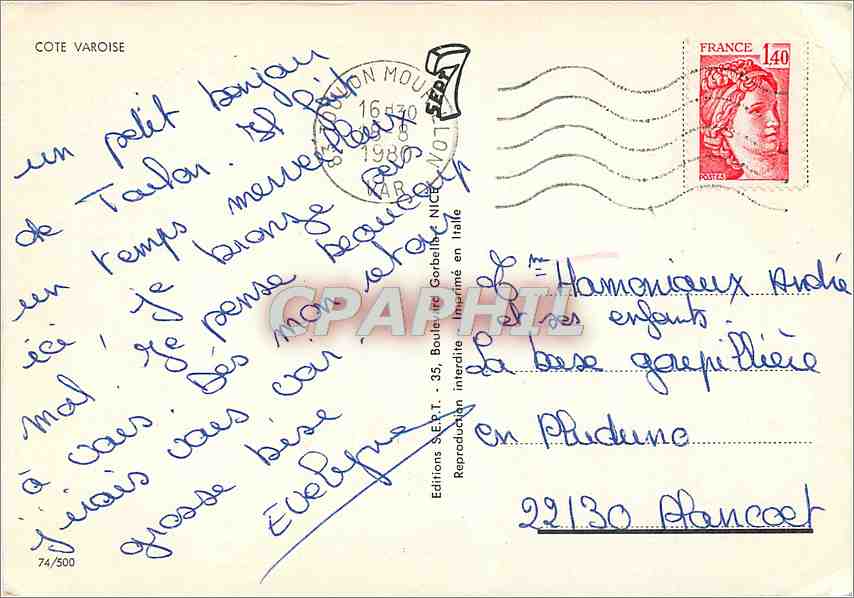 COTE VAROISE
un petit bonjour
de Toulon. Il fait
un temps merveilleux
ici, je bronze pas
mal. Je pense beaucoup
à vous. Dès mon retour
j'irais vous voir.
grosse bise
Evelyne
74/500
83 TOULON MOU LON
16H30
-8
1980
VAR
SEPT 7
Editions S.E.P.T. - 35, Boulevard Gorbella NICE
Reproduction interdite - Imprimé en Italie
FRANCE 1,40
POSTES
Hamoniaux André
et ses enfants.
La base gaupillière
en Pluduno
22130 Plancoet
CPAPHIL